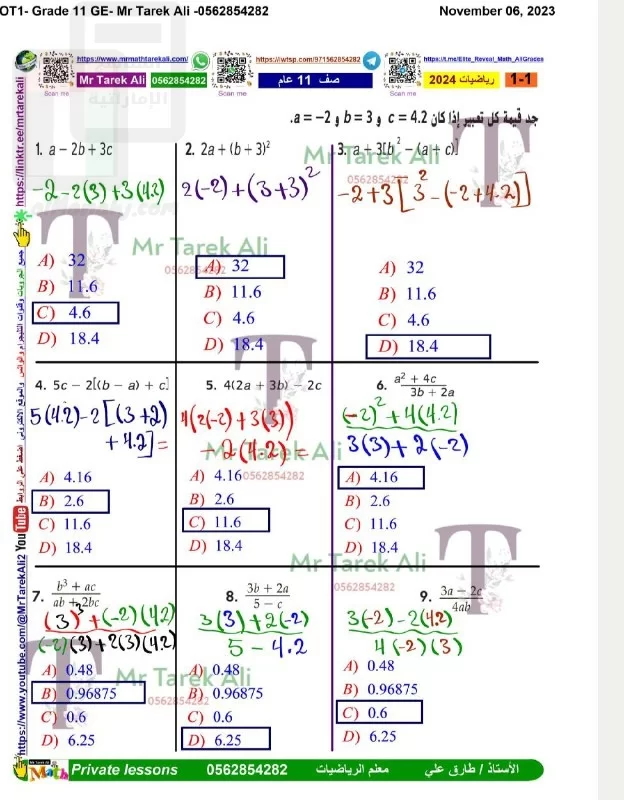 OT1- Grade 11 GE- Mr Tarek Ali -0562854282 November 06, 2023
https://www.mrmathtarekali.com/ https://iwtsp.com/971562854282 https://t.me/Elite_Reveal_Math_AllGrades
Mr Tarek Ali 0562854282 صف 11 عام رياضيات 2024 1-1
Scan me Scan me Scan me
جد قيمة كل تعبير إذا كان c = 4.2 و b = 3 و a = −2.
1. a − 2b + 3c 2. 2a + (b + 3)² 3. a + 3[b² − (a + c)]
-2-2(3)+3(4.2) 2(-2)+(3+3)² -2+3[3²-(-2+4.2)]
Mr Tarek Ali
0562854282
A) 32 A) 32 A) 32
B) 11.6 B) 11.6 B) 11.6
C) 4.6 C) 4.6 C) 4.6
D) 18.4 D) 18.4 D) 18.4
4. 5c − 2[(b − a) + c] 5. 4(2a + 3b) − 2c 6. (a² + 4c)/(3b + 2a)
5(4.2)-2[(3+2) 4(2(-2)+3(3)) (-2)²+4(4.2)
+4.2]= -2(4.2)= 3(3)+2(-2)
Mr Tarek Ali
0562854282
A) 4.16 A) 4.16 A) 4.16
B) 2.6 B) 2.6 B) 2.6
C) 11.6 C) 11.6 C) 11.6
D) 18.4 D) 18.4 D) 18.4
Mr Tarek Ali
0562854282
7. (b³ + ac)/(ab + 2bc) 8. (3b + 2a)/(5 − c) 9. (3a − 2c)/(4ab)
(3)³+(-2)(4.2) 3(3)+2(-2) 3(-2)-2(4.2)
(-2)(3)+2(3)(4.2) 5-4.2 4(-2)(3)
Mr Tarek Ali
0562854282
A) 0.48 A) 0.48 A) 0.48
B) 0.96875 B) 0.96875 B) 0.96875
C) 0.6 C) 0.6 C) 0.6
D) 6.25 D) 6.25 D) 6.25
Math Private lessons 0562854282 معلم الرياضيات الأستاذ / طارق علي
https://linktr.ee/mrtarekali
https://www.youtube.com/@MrTarekAli2 YouTube